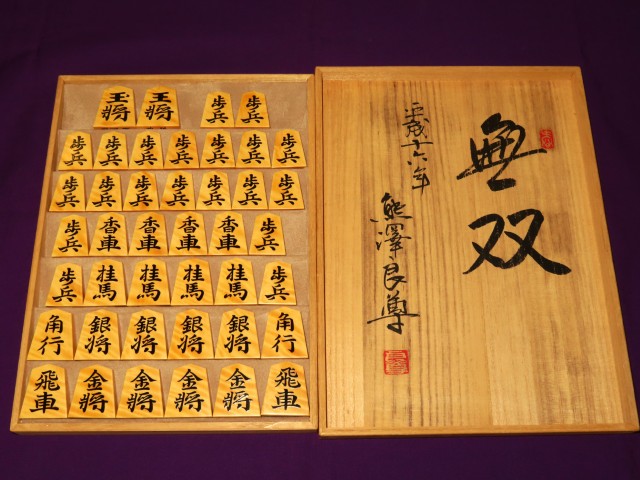 玉将 王将 歩兵 歩兵
歩兵 歩兵 歩兵 歩兵 歩兵 歩兵 歩兵
歩兵 歩兵 歩兵 歩兵 歩兵 歩兵 歩兵
歩兵 香車 香車 香車 香車 歩兵
歩兵 桂馬 桂馬 桂馬 桂馬 歩兵
角行 銀将 銀将 銀将 銀将 角行
飛車 金将 金将 金将 金将 飛車
無双
平成十六年
熊澤良尊